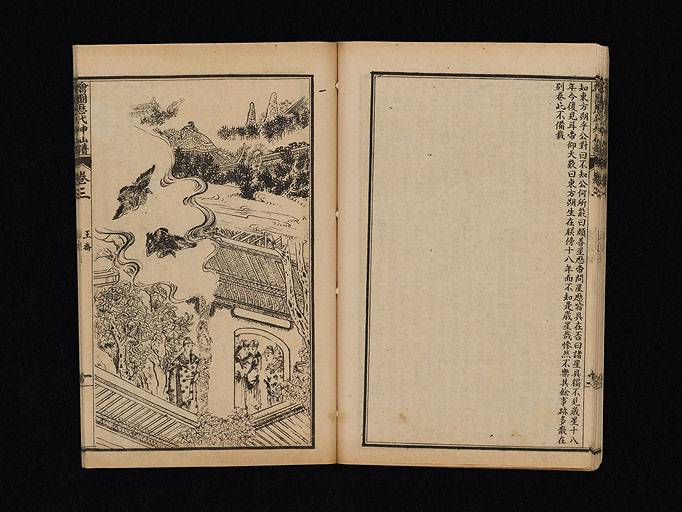 知東方朔乎公對曰不知公何所能曰頗善星歷帝問星歷皆具在否曰諸星具獨不見歲星十八
年今復見耳帝仰天歎曰東方朔生在朕傍十八年而不知是歲星哉慘然不樂其餘事跡多散在
別卷此不備載
繪圖歷代神仙譜
卷三
王喬
一